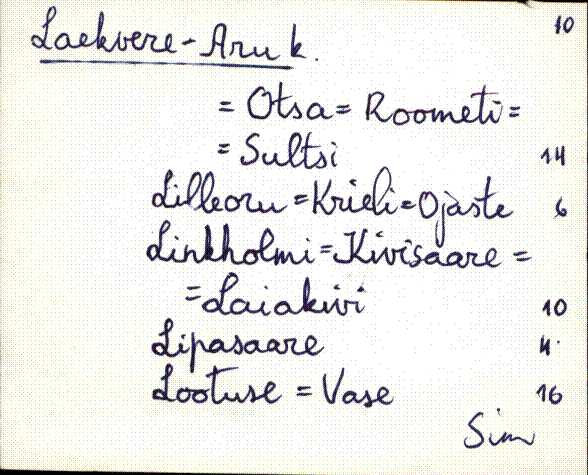 Laekvere-Aru k. 10
= Otsa = Roometi =
= Sultsi 14
Lilleoru = Krieli = Ojaste 6
Linkholmi = Kivisaare =
= Laiakivi 10
Lipasaare 4
Lootuse = Vase 16
Sim